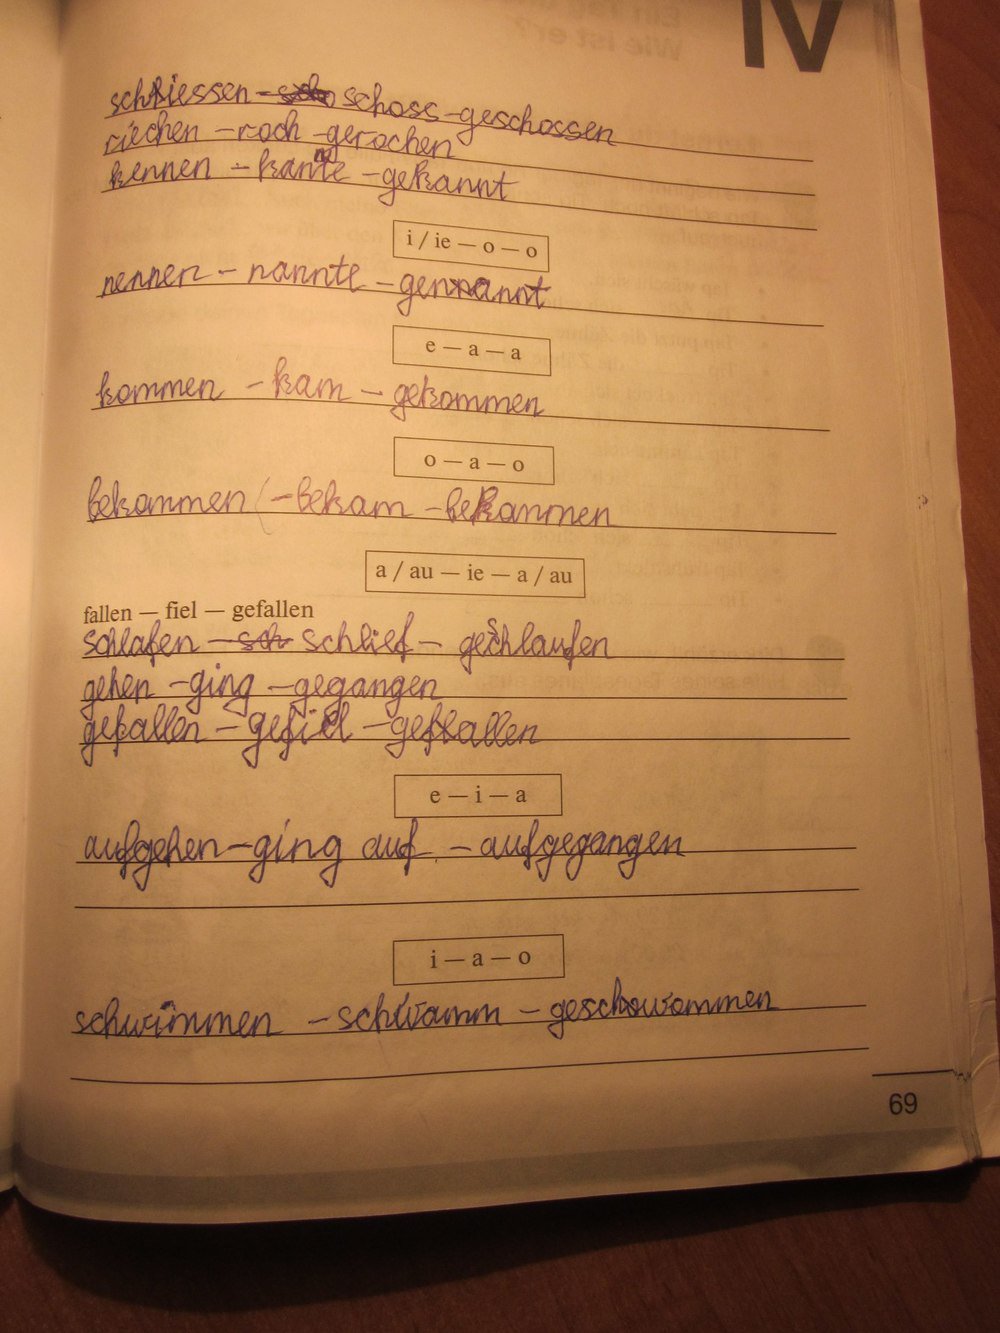 IV
schiessen – schoss – geschossen
riechen – roch – gerochen
kennen – kannte – gekannt
i / ie — o — o
nennen – nannte – genannt
e — a — a
kommen – kam – gekommen
o — a — o
bekommen – bekam – bekommen
a / au — ie — a / au
fallen — fiel — gefallen
schlafen – schlief – geschlaufen
gehen – ging – gegangen
gefallen – gefiel – gefallen
e — i — a
aufgehen – ging auf – aufgegangen
i — a — o
schwimmen – schwamm – geschwommen
69